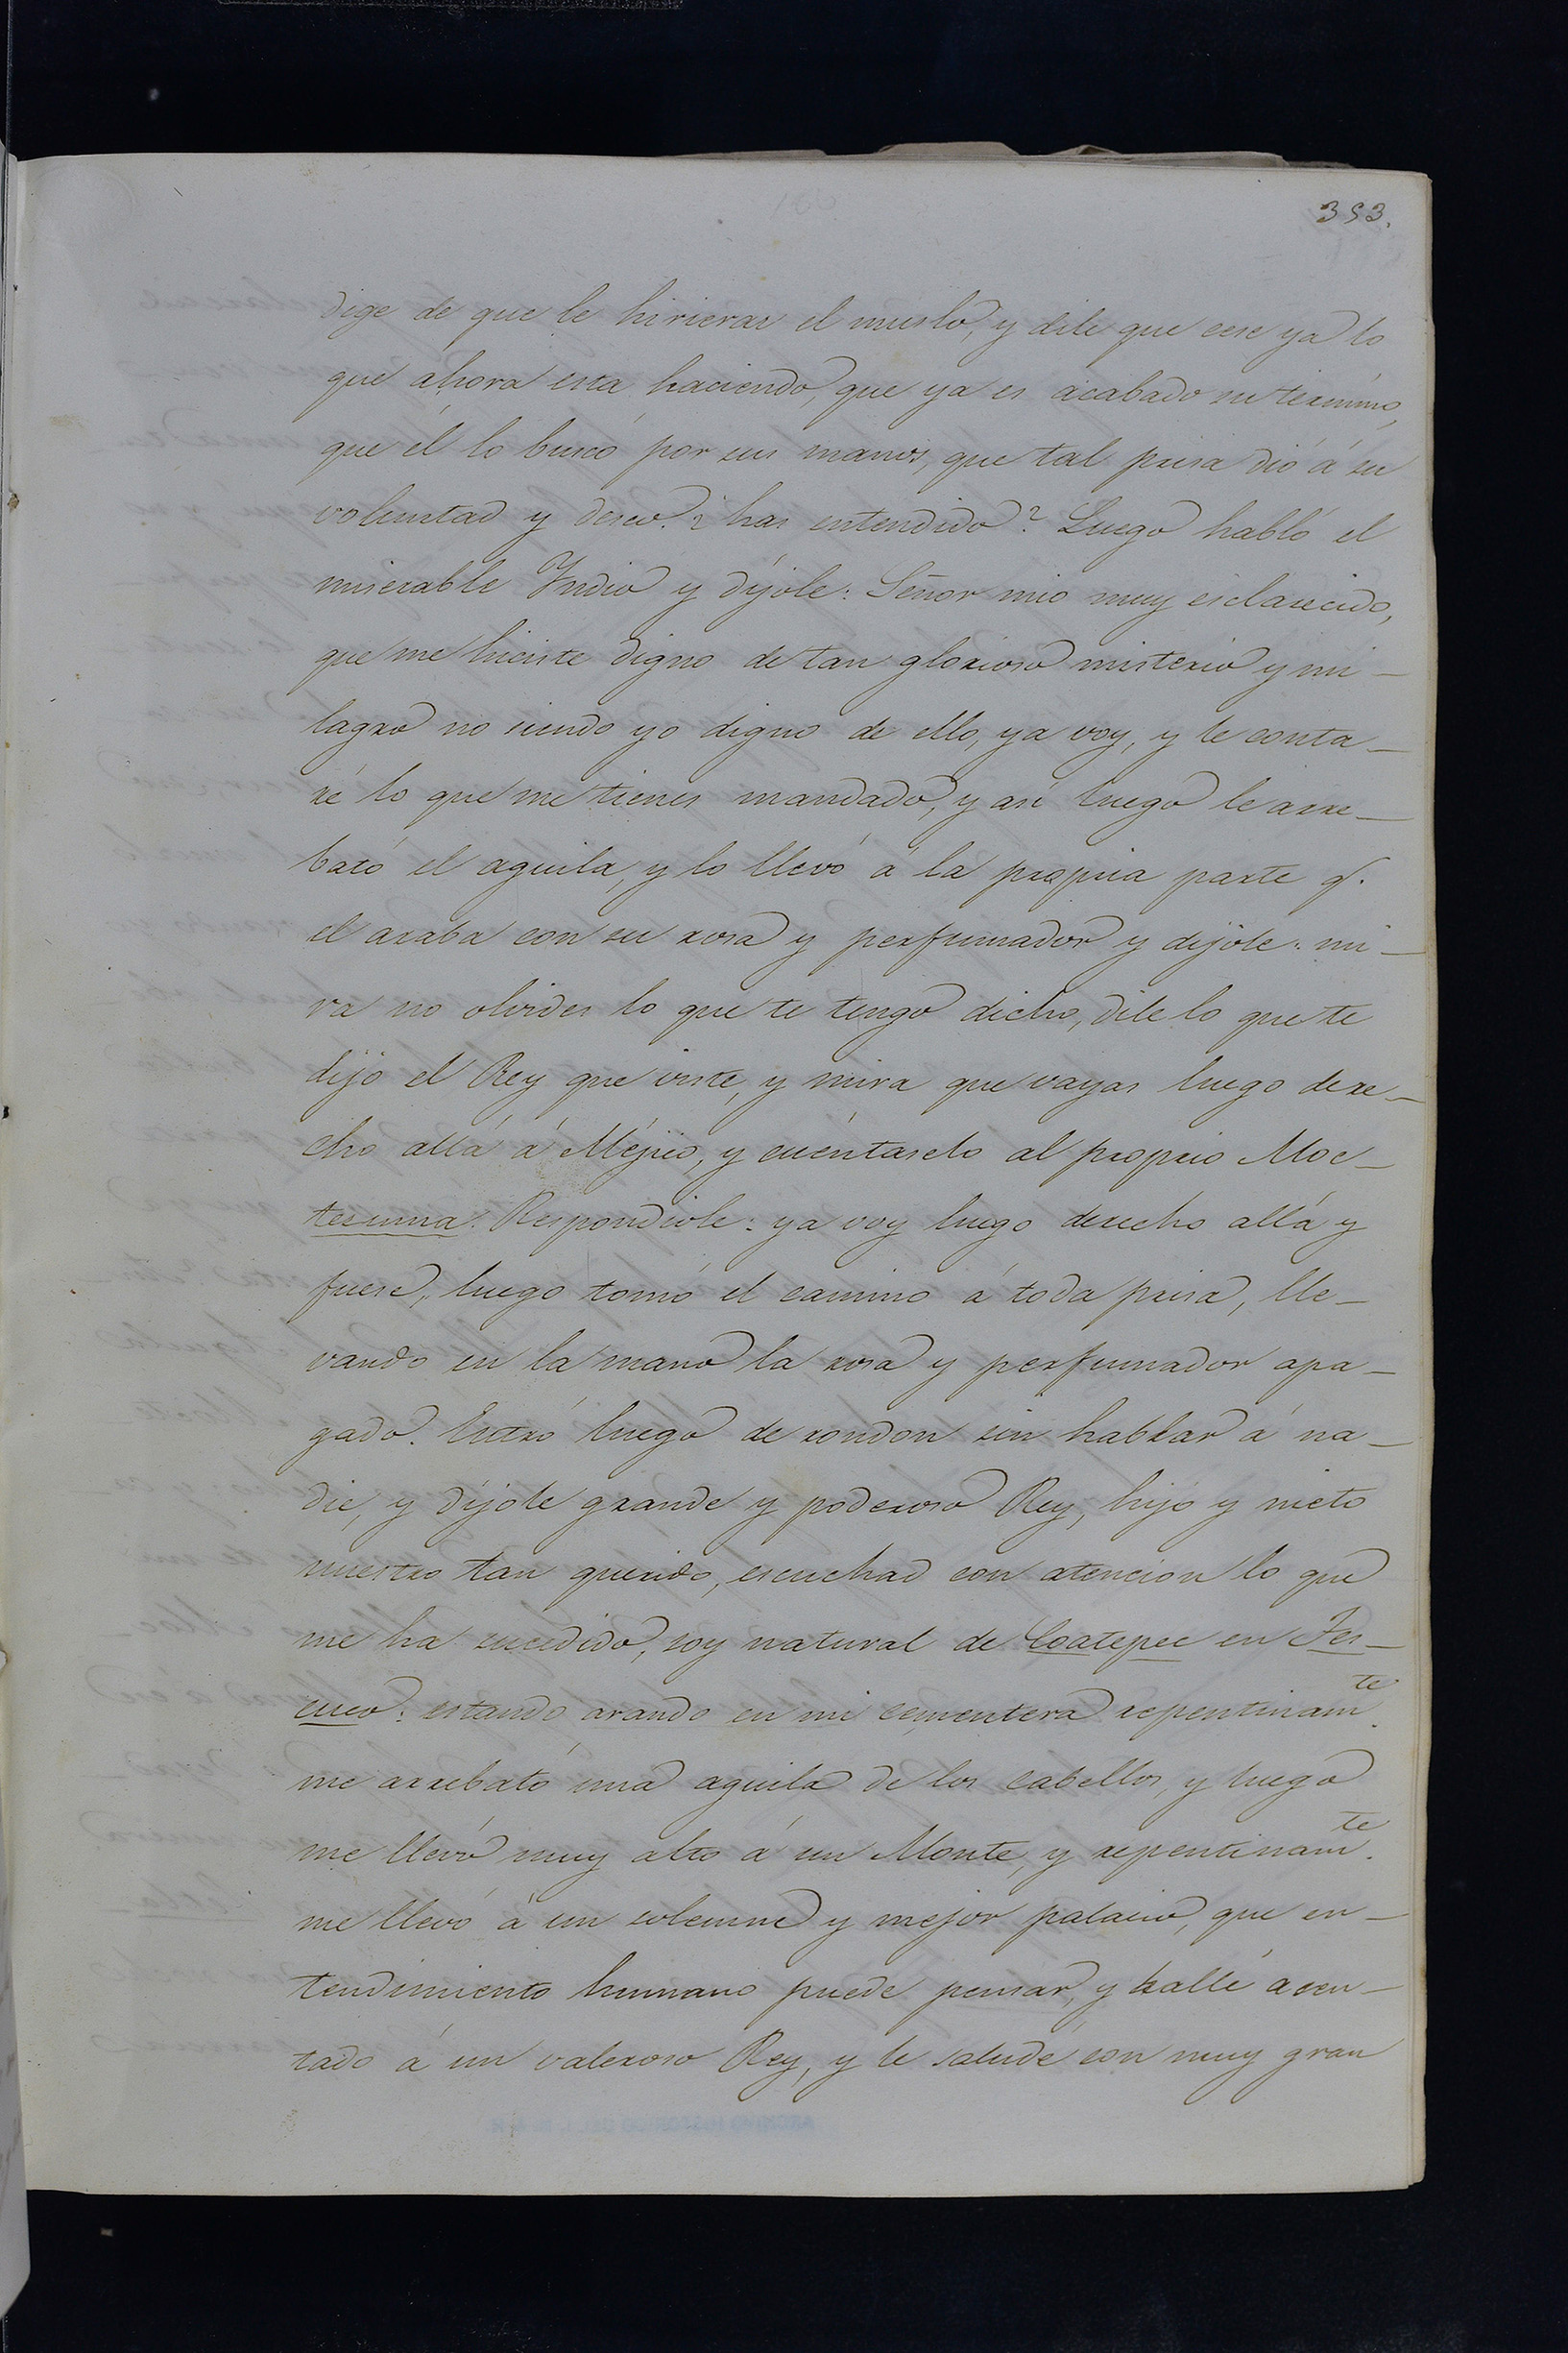 353.
dige de que le hirieras el muslo, y dile que cese ya lo
que ahora esta haciendo, que ya es acabado su termino,
que él lo buscó por sus manos, que tal prisa dió á su
voluntad y deseo. ¿has entendido? Luego habló el
miserable Indio y díjole: Señor mio muy esclarecido,
que me hiciste digno de tan glorioso misterio y mi-
lagro no siendo yo digno de ello, ya voy, y le conta-
ré lo que me tienes mandado, y asi luego le arre-
bató el aguila, y lo llevó á la propria parte q.
el araba con su rosa y perfumador y dijole: mi-
ra no olvides lo que te tengo dicho, dile lo que te
dijo el Rey que viste, y mira que vayas luego dere-
cho allá á Méjico, y cuéntaselo al proprio Moc-
tesuma. Respondiole: ya voy luego derecho allá y
fuese, luego tomó el camino á toda prisa, lle-
vando en la mano la rosa y perfumador apa-
gado. Entró luego de rondon sin hablar á na-
die, y díjole grande y poderoso Rey, hijo y nieto
nuestro tan querido, escuchad con atencion lo que
me ha sucedido, soy natural de Coatepec en Tes-
cuco: estando arando en mi cementera repentinamte.
me arrebató una aguila de los cabellos, y luego
me llevó muy alto á un Monte, y repentinamte.
me llevó á un solemne y mejor palacio, que en-
tendimiento humano puede pensar, y hallé asen-
tado á un valeroso Rey, y le saludé con muy gran